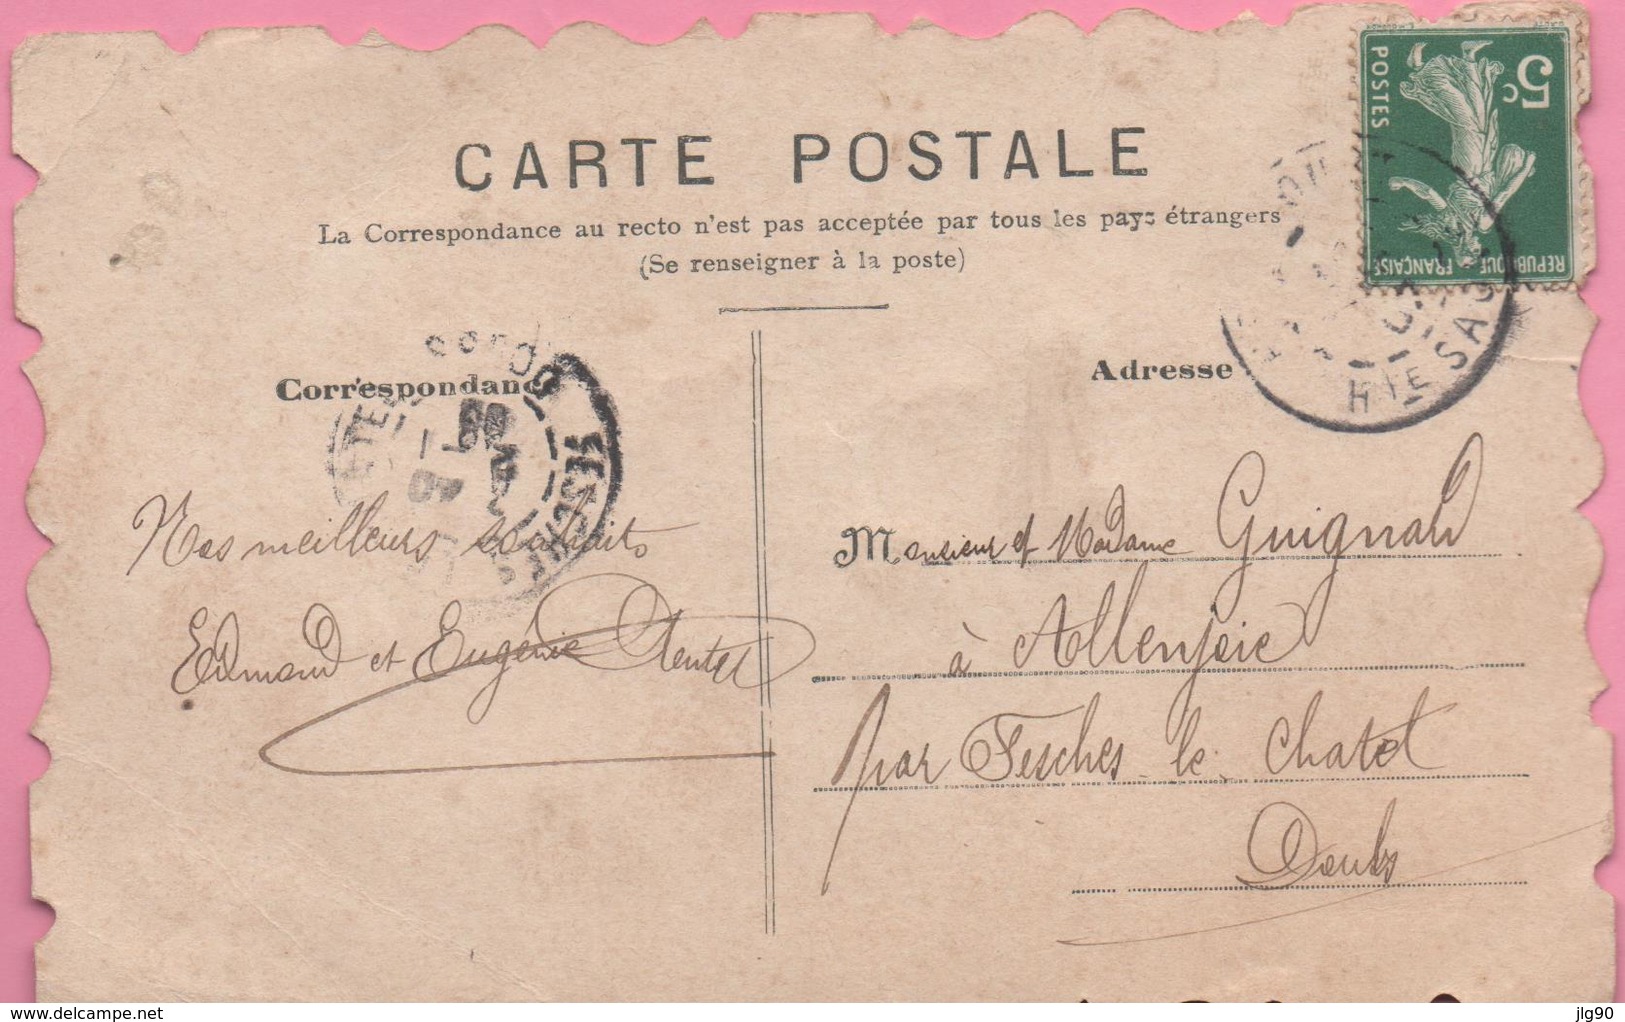 CARTE POSTALE
La Correspondance au recto n'est pas acceptée par tous les pays étrangers
(Se renseigner à la poste)
5c
POSTES
REPUBLIQUE FRANÇAISE
HTE SAÔ
Correspondance
Adresse
Nos meilleurs souhaits
Edmond et Eugénie
Monsieur et Madame Guignard
à Allenjoie
par Fesches-le-Chatel
Doubs
delcampe.net
jlg90